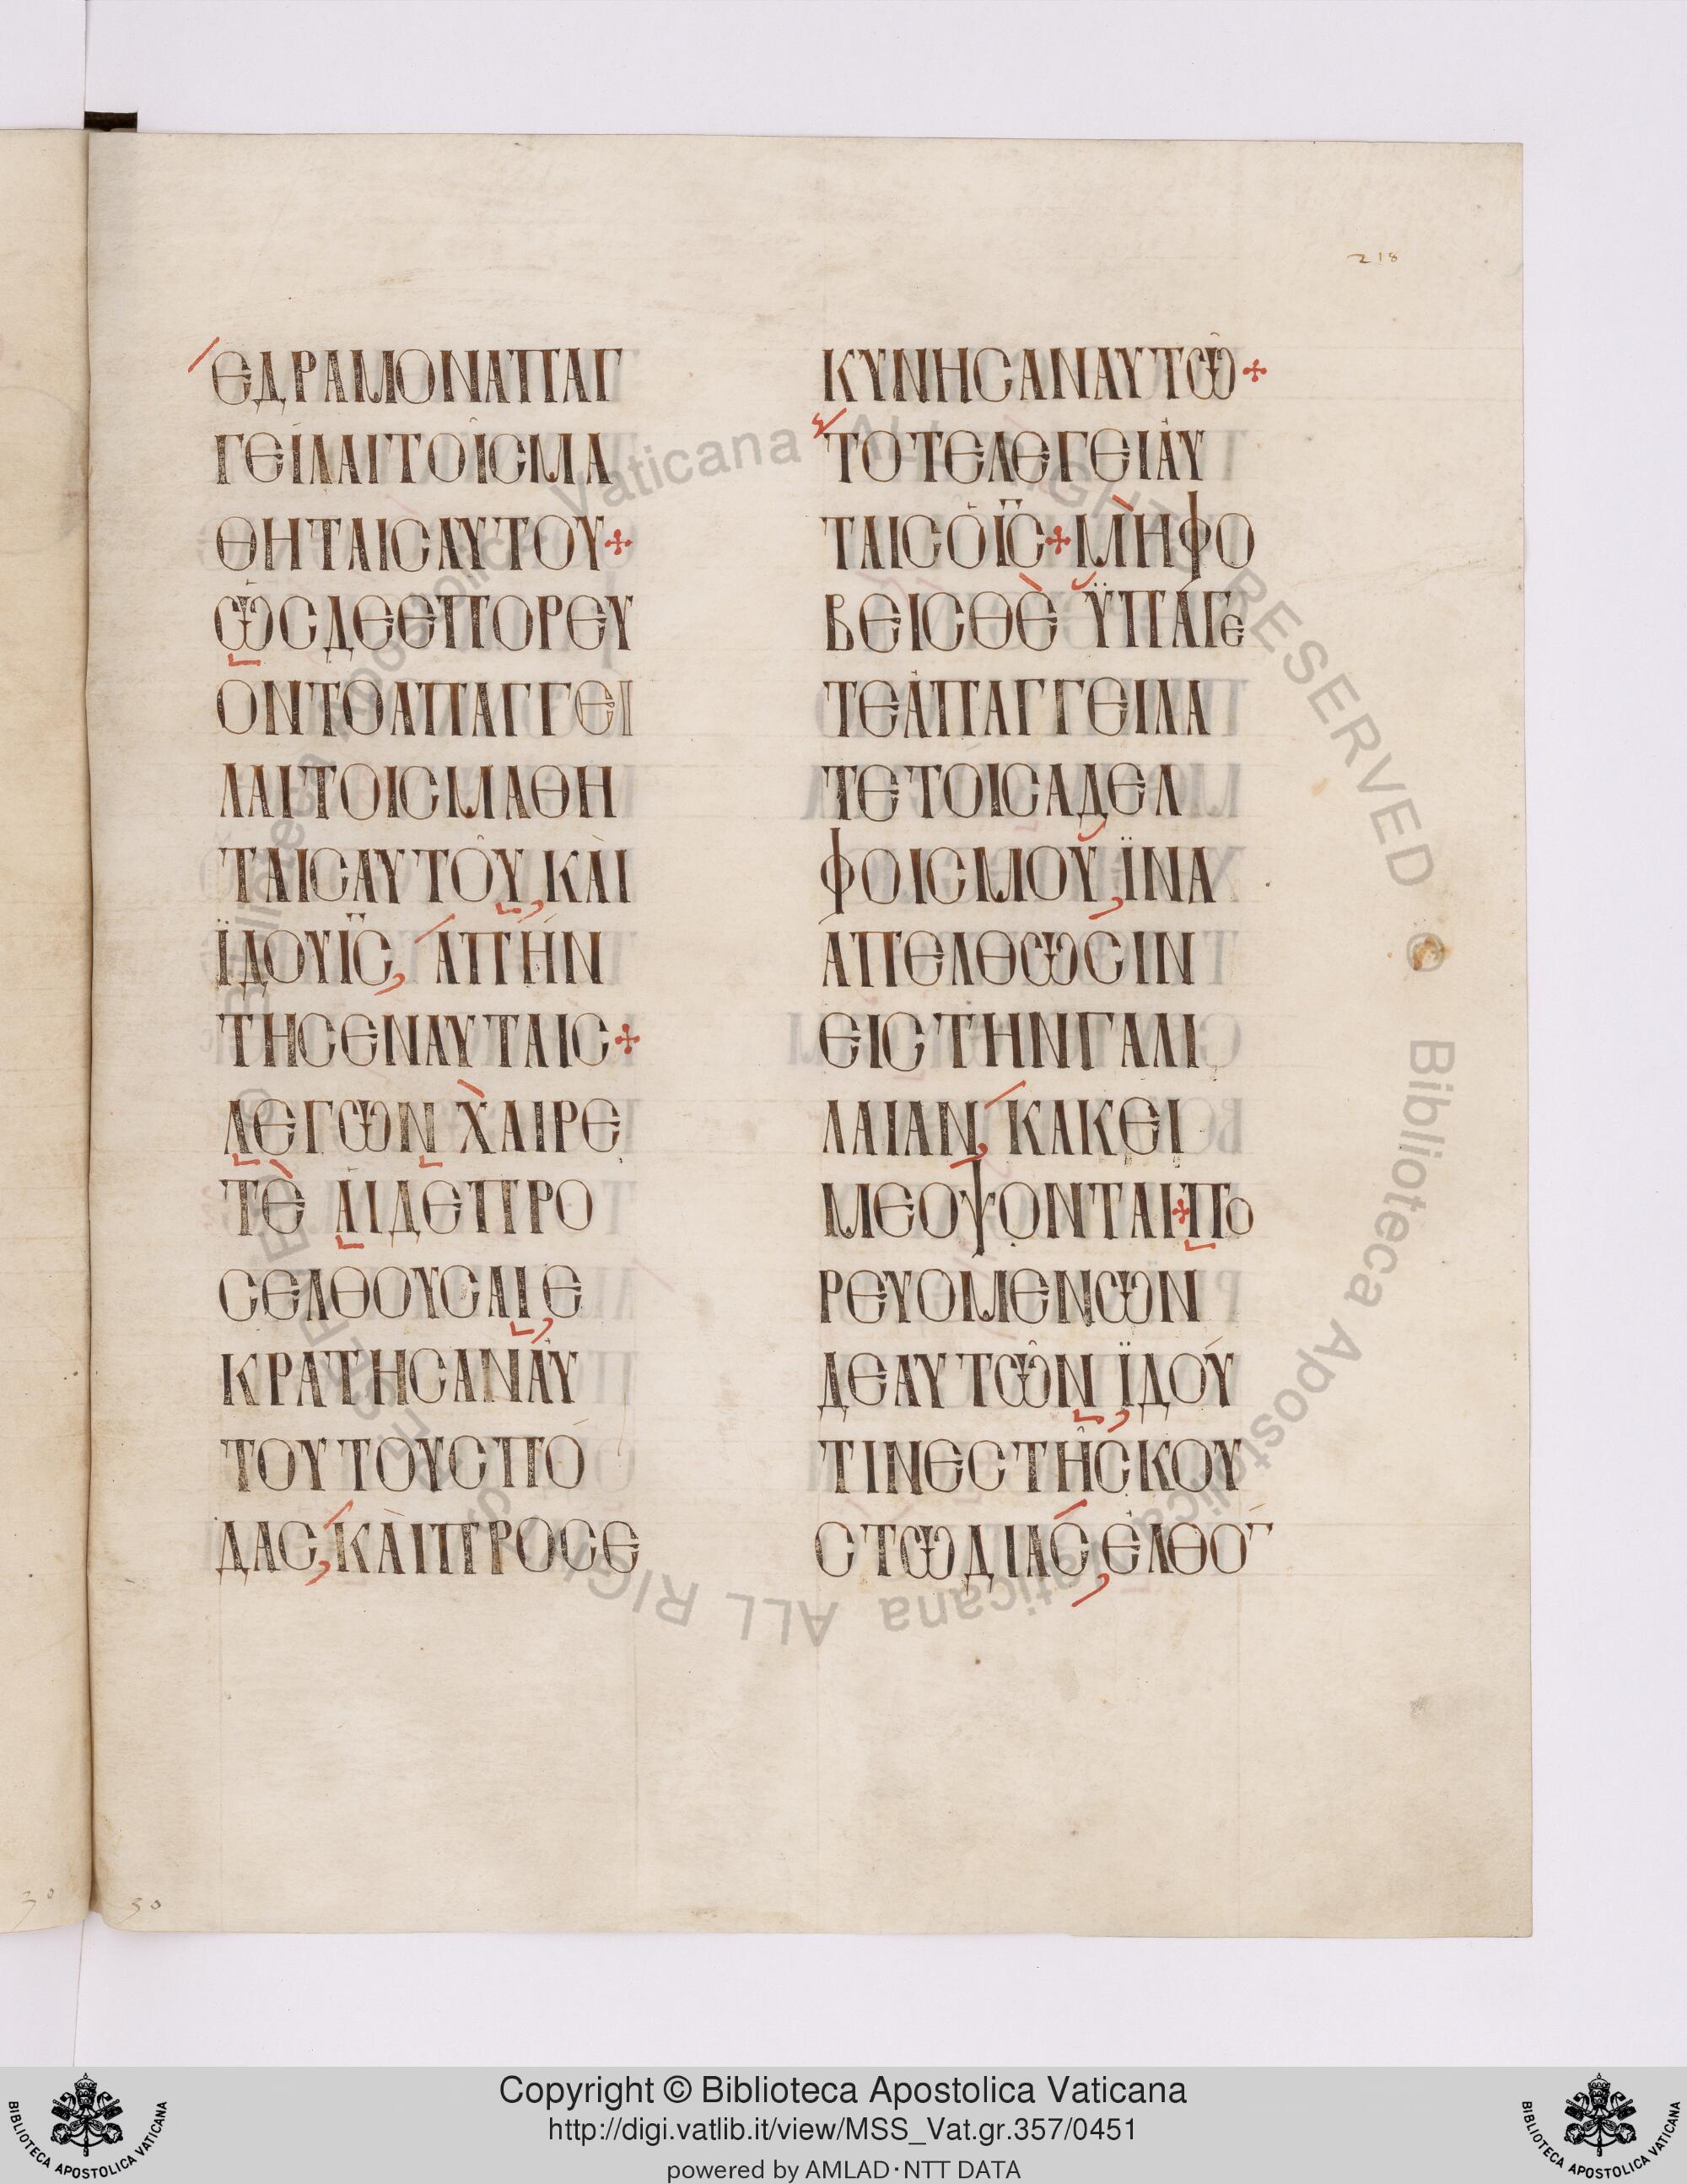 218
ΕΔΡΑΜΟΝΑΠΑΓ
ΓΕΊΛΑΙΤΟΙ͂CΜΑ
ΘΗΤΑΙCΑΥΤΟΥ✢
ὩCΔΕΕΠΟΡΕΥ
ΟΝΤΟΑΠΑΓΓΕΙ
ΛΑΙΤΟΙCΜΑΘΗ
ΤΑΙCΑΥΤΟΥ͂, ΚᾺΙ
ΪΔΟΥΙ̅C̅, ἈΠΉΝ
ΤΗCΕΝΑΥΤΑΙC✢
ΛΕΓΩΝ ΧΑΙΡΕ
ΤῈ ἉΙΔΕΠΡΟ
CΕΛΘΟΥCΑΙ, Ε
ΚΡΑΤΗCΑΝἈΥ
ΤΟΥΤΟΥCΠΌ
ΔΑC, ΚᾺΙΠΡΟCΕ
ΚΥΝΗCΑΝΑΥΤΩ͂✢
ΤΟΤΕΛΕΓΕΙἈΥ
ΤΑΙCὉΙ̅C̅✢ΜῊΦΟ
ΒΕΙCΘῈ ΫΠΆΓΕ
ΤΕἈΠΑΓΓΕΙΛΑ
ΤΕΤΟΙCΑΔΕΛ
ΦΟΙCΜΟΥ, ΪΝΑ
ἈΠΕΛΘΩCΙΝ
ΕΙCΤΗΝΓΑΛΙ
ΛΑΙΑΝ, ΚΑΚΕΙ
ΜΕΟΨΟΝΤΑΙ✢ΠΟ
ΡΕΥΟΜΕΝΩΝ
ΔΕΑΥΤΩ͂Ν, ΪΔΟΎ
ΤΙΝΕCΤΗ͂CΚΟΥ
CΤΩΔΙΑC, ἘΛΘΌ
30
30
Biblioteca Apostolica Vaticana ALL RIGHTS RESERVED © Biblioteca Apostolica Vaticana ALL RIGHTS RESERVED ©
Copyright © Biblioteca Apostolica Vaticana
http://digi.vatlib.it/view/MSS_Vat.gr.357/0451
powered by AMLAD·NTT DATA
BIBLIOTECA APOSTOLICA VATICANA
BIBLIOTECA APOSTOLICA VATICANA